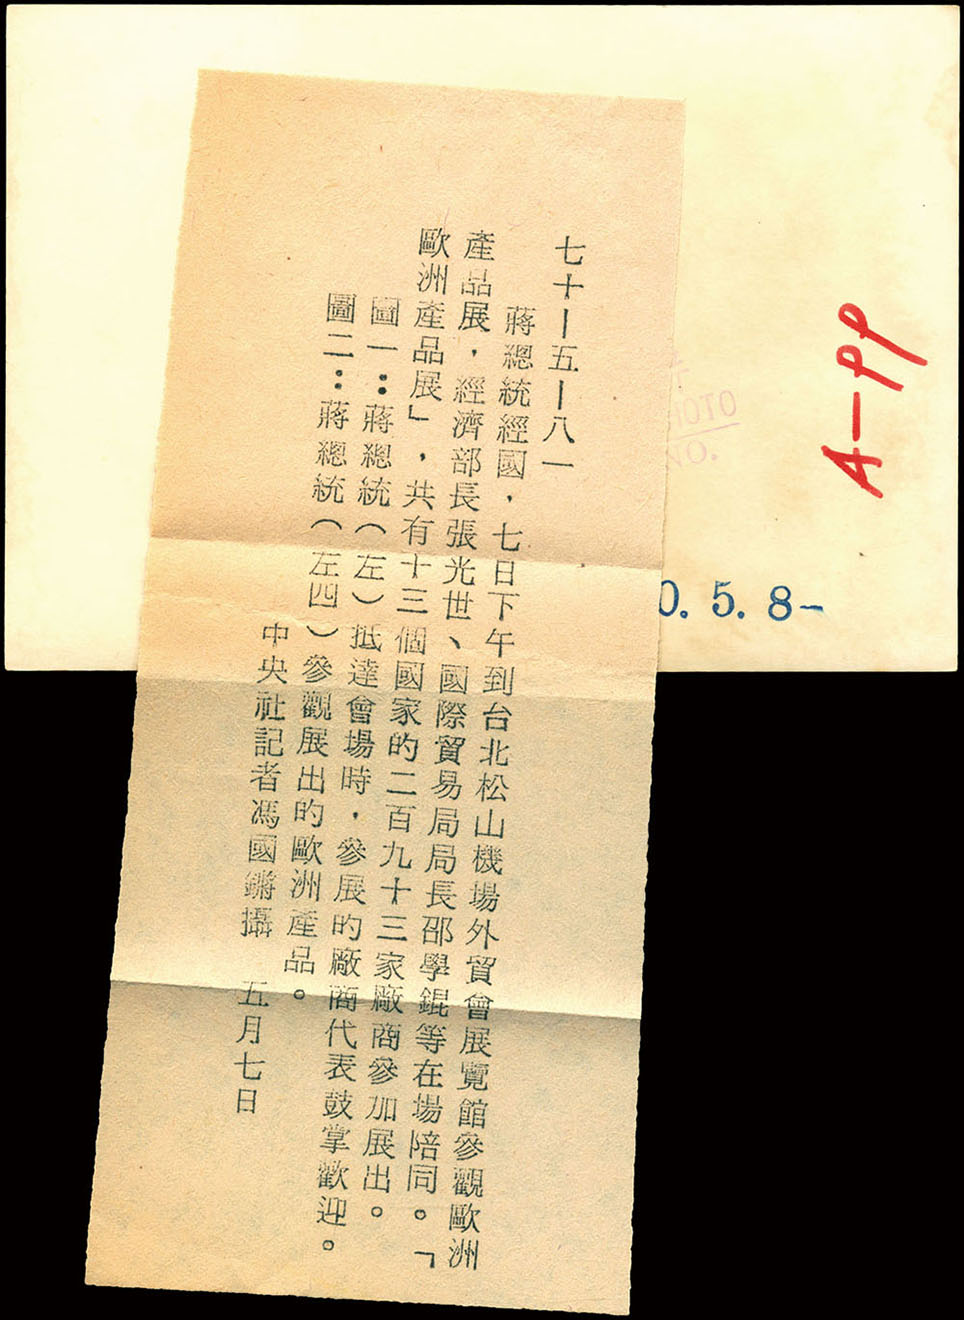 七十－五－八一
蔣總統經國，七日下午到台北松山機場外貿會展覽館參觀歐洲
產品展，經濟部長張光世、國際貿易局局長邵學錕等在場陪同。「
歐洲產品展」，共有十三個國家的二百九十三家廠商參加展出。
圖一：蔣總統（左）抵達會場時，參展的廠商代表鼓掌歡迎。
圖二：蔣總統（左四）參觀展出的歐洲產品。
中央社記者馮國鏘攝　五月七日
A-PP
0. 5. 8-
NO.